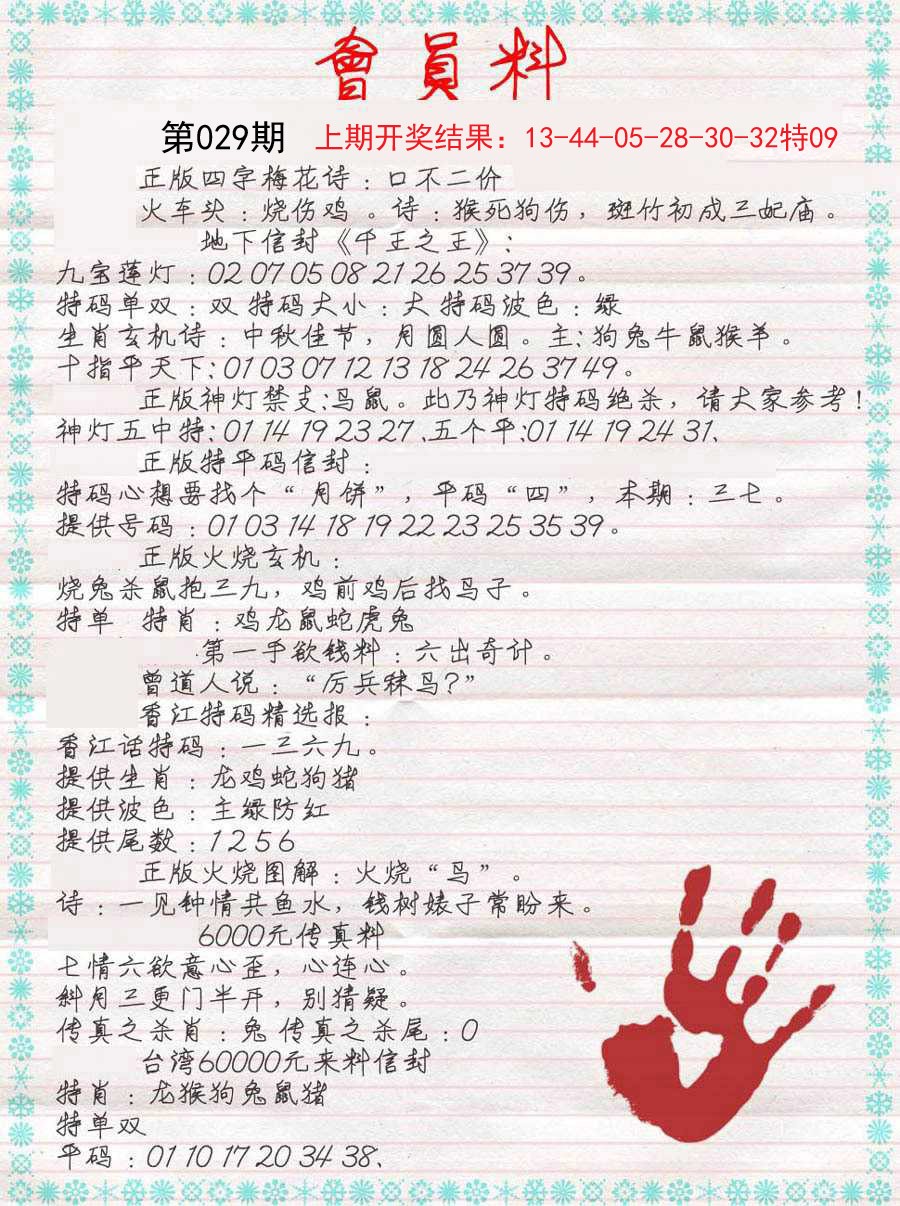 會員料
第029期 上期开奖结果：13-44-05-28-30-32特09
正版四字梅花诗：口不二价
火车头：烧伤鸡。诗：猴死狗伤，斑竹初成三妃庙。
地下信封《千王之王》：
九宝莲灯：02 07 05 08 21 26 25 37 39。
特码单双：双 特码大小：大 特码波色：绿
生肖玄机诗：中秋佳节，月圆人圆。主：狗兔牛鼠猴羊。
十指平天下：01 03 07 12 13 18 24 26 37 49。
正版神灯禁支：鸟鼠。此乃神灯特码绝杀，请大家参考！
神灯五中特：01 14 19 23 27、五个平：01 14 19 24 31、
正版特平码信封：
特码心想要找个“月饼”，平码“四”，本期：三七。
提供号码：01 03 14 18 19 22 23 25 35 39。
正版火烧玄机：
烧兔杀鼠抱三九，鸡前鸡后找马子。
特单 特肖：鸡龙鼠蛇虎兔
第一手欲钱料：六出奇计。
曾道人说：“厉兵秣马？”
香江特码精选报：
香江话特码：一三六九。
提供生肖：龙鸡蛇狗猪
提供波色：主绿防红
提供尾数：1 2 5 6
正版火烧图解：火烧“鸟”。
诗：一见钟情共鱼水，钱树婊子常盼来。
6000元传真料
七情六欲意心歪，心连心。
斜月三更门半开，别猜疑。
传真之杀肖：兔 传真之杀尾：0
台湾60000元来料信封
特肖：龙猴狗兔鼠猪
特单双
平码：01 10 17 20 34 38、